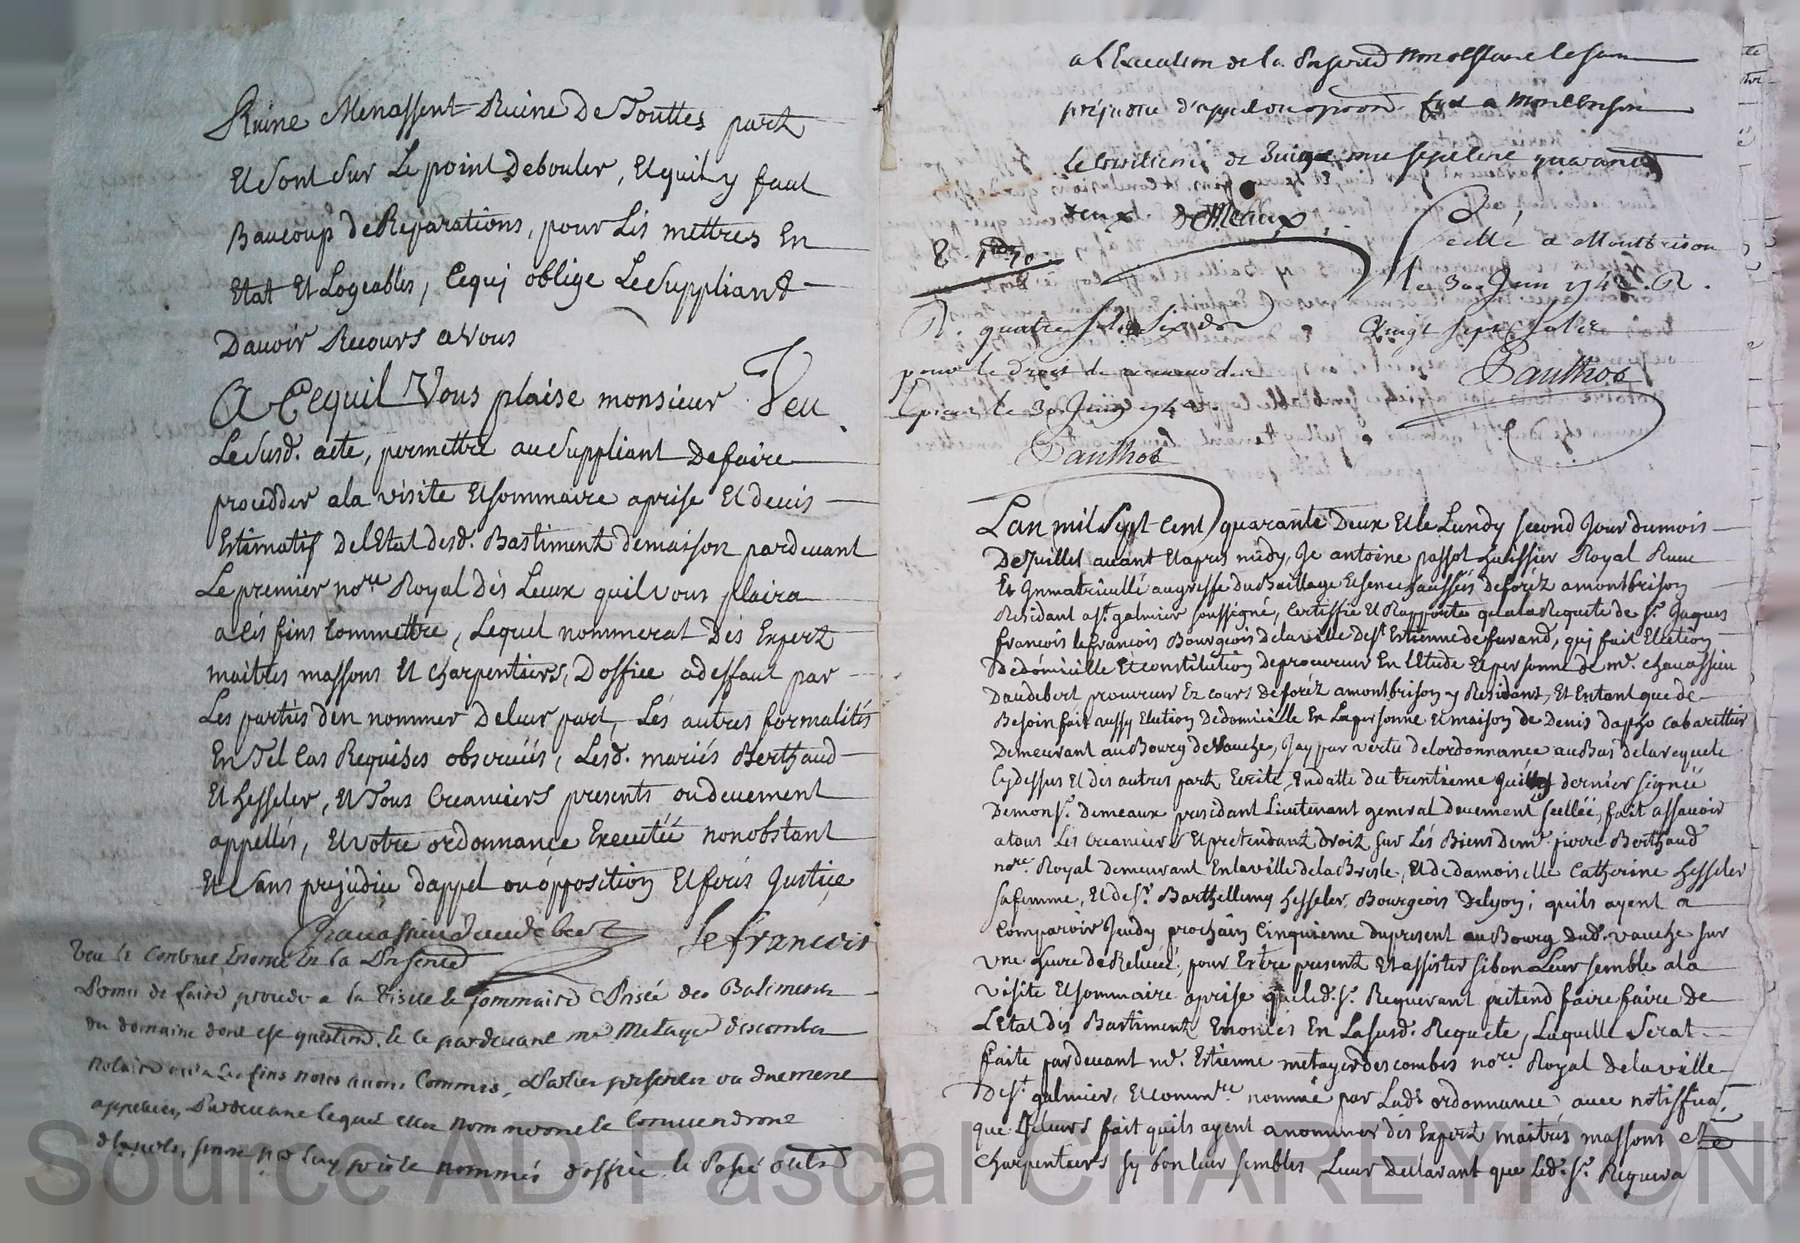 Ruine Menassent Ruine De Touttes partz
Et sont sur Le point debouler, Et quil y faut
Baucoup de Reparations, pour Lés mettres En
Etat Et Logeables, Cequj oblige Lesuppliand
Dauoir Recours a Vous
A Cequil Vous plaise monsieur Veu
Le susd. acte, permettre au suppliant De faire
procedder a la visite Et sommaire aprise Et deuis
Estimatif de lEtat desd. Bastimentz demaison pardeuant
Le premier nore. Royal dés Lieux quil vous plaira
a cés fins Commettre, Lequel nommerat Dés Expertz
maitres massons Et charpentiers, Doffice a deffaut par
Les parties den nommer De leur part, Lés autres formalités
En Tel Cas Requises obseruéés, Lesd. mariés Berthaud
Et hesseler, Et Tous Creanciers presents ou deuement
appellés, Et Votre ordonnançe Executéé nonobstant
Et Sans prejudice dappel ou opposition Et feres Justiçe
Chauassieu Daudebert Lefrancois
Veu le Contrat Enoncé En La presente
Permis de faire proceder a la Visite et sommaire Prisée des Batiments
du domaine dont est question, et ce pardeuant me. Metayer descombe
notaire qu'a ces fins nous auons Commis, Parties presentes ou duement
appelées, Pardeuant lequel elles nommeront et Conuiendront
d'Experts, sinon par luy sera nommés d'office, et Passé outre
a l'Execution de la presente Nonobstant et sans
préjudice d'appel ou opposon. fait a Montbrison
le trentieme de Juin mil sept cent quarante
deux DeMeaux
Scellé a Montbrison
Le 30e. Juin 1742. R.
Vingt sept sols
Pauthod
R. quatre sols six der
pour le droit de
Epices le 30 Juin 1742.
Pauthod
Lan mil sept cent quarante Deux Et le Lundy second Jour dumois
De Juillet auant Et apres midy, Je antoine passot huissier Royal Receu
Et Jmmatricullé au greffe du Baillage Et senechaussés deforéz a montbrison
Residant a st. galmier soussigné, Certiffie Et Rapporte qua la Requete de sr. Jaques
françois lefrançois Bourgeois de laville de st. Estienne de furand, quj fait Election
De domicille Et constitution de procureur En lEtude Et personne de me. chauassieu
Daudebert procureur Ez cours deforéz a montbrison y Residant, Et Entant que de
Besoin fait aussy Election De domicille En la personne Et maison de Denis dapzo cabarettier
Demeurant au Bourg de Vauche, Jay par vertu de lordonnance au Bas dela requete
Cy dessus Et des autres partz Ecrite, En datte du trentieme juin dernier signéé
De monsr. demeaux president Lieutenant general deuement scellée, fait assauoir
a tous Lés Creanciers Et pretendantz Droitz sur Lés Biens de me. pierre Berthaud
nore. Royal demeurant En laville de la Bresle, Et de damoiselle Catherine hesseler
sa femme, Et de sr. Barthellemy hesseler, Bourgeois de Lyon; quils ayent a
Comparoir Jeudy prochain Cinquieme du present au Bourg dud. vauche sur
Vne heure de Releuéé, pour Estre presentz Et assister si bon Leur semble a la
Visite Et sommaire aprise que led. sr. Requerant pretend faire faire de
LEtat dés Bastimentz Enoncés En La susd. Requete, Laquelle Serat
faite pardeuant me. Estienne metayer descombes nore. Royal de laville
De st. galmier, Et commre. nommé par Lad. ordonnance, auec notiffica.
que Jeleurs fait quils ayent a nommer des Expertz maitres massons et
Charpentiers sy bon leur sembles, Leur declarant que Led. sr. Requera
Source AD Pascal CHAREYRON